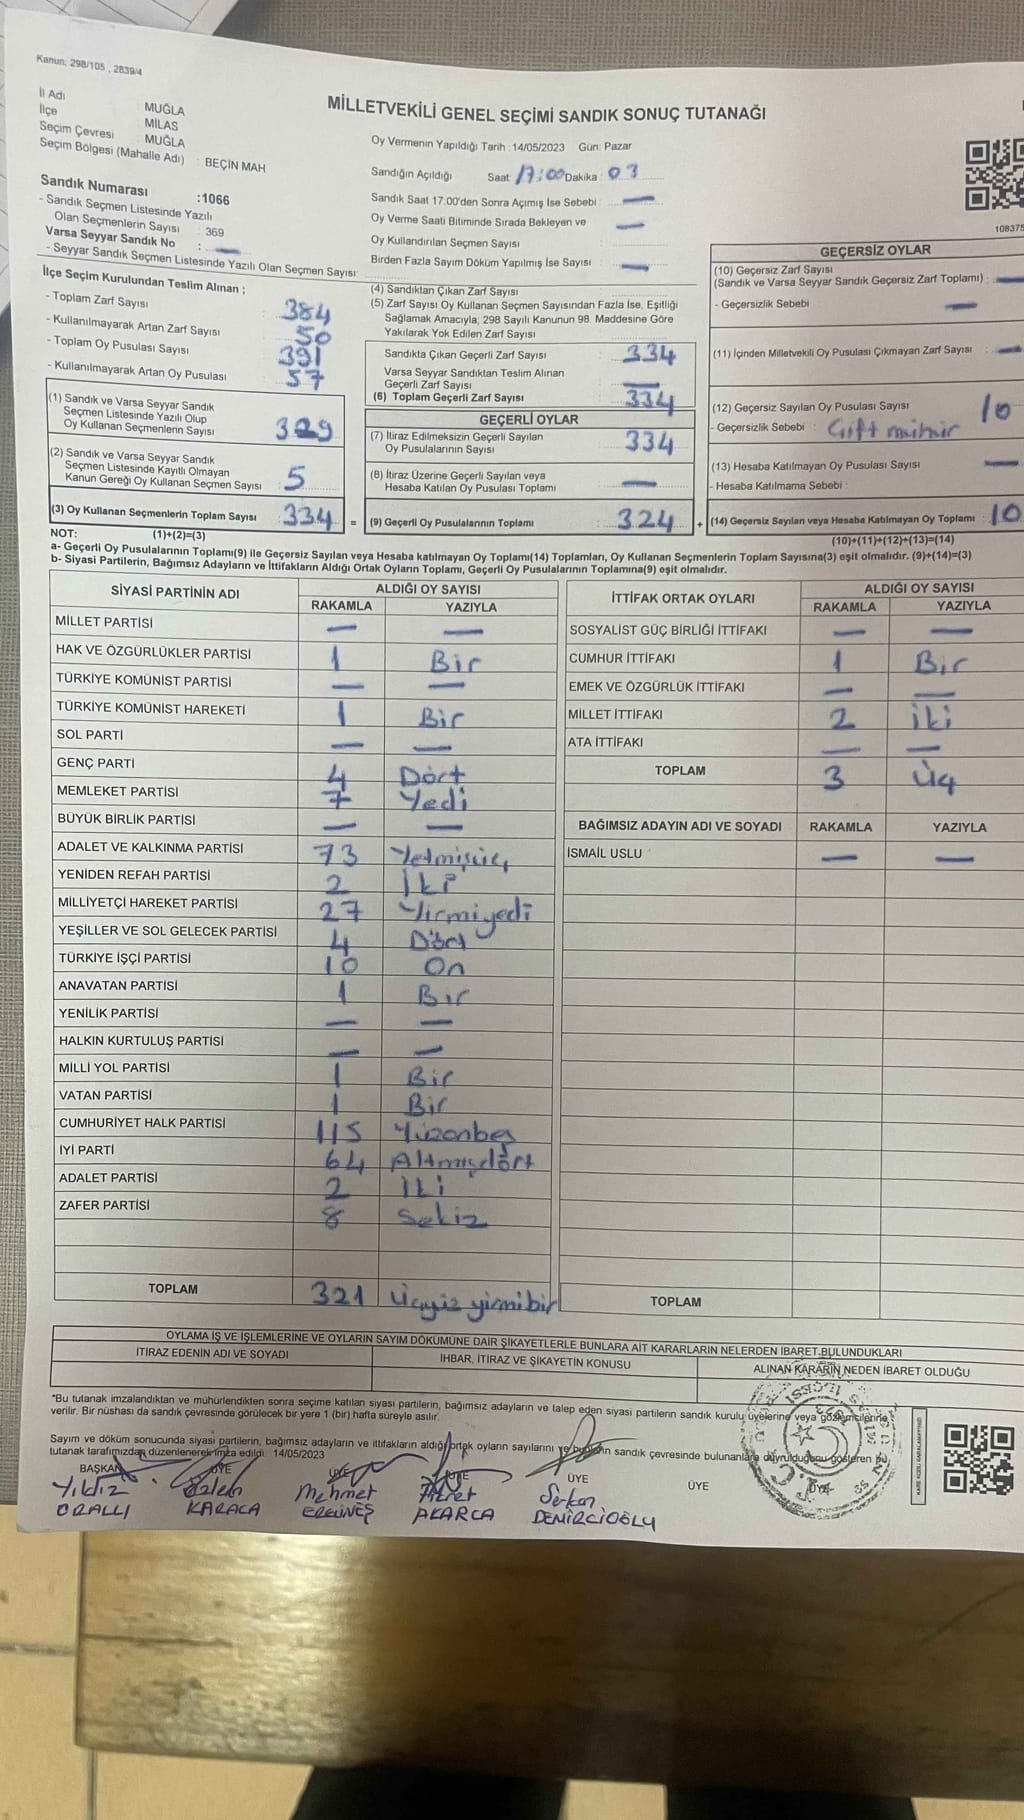 Kanun; 298/105 , 2839/4
MİLLETVEKİLİ GENEL SEÇİMİ SANDIK SONUÇ TUTANAĞI
İl Adı MUĞLA
İlçe MİLAS
Seçim Çevresi MUĞLA
Seçim Bölgesi (Mahalle Adı) : BEÇİN MAH
Sandık Numarası :1066
- Sandık Seçmen Listesinde Yazılı
Olan Seçmenlerin Sayısı : 369
Varsa Seyyar Sandık No : —
- Seyyar Sandık Seçmen Listesinde Yazılı Olan Seçmen Sayısı:
Oy Vermenin Yapıldığı Tarih :14/05/2023 Gün: Pazar
Sandığın Açıldığı Saat: 17:00 Dakika : 03
Sandık Saat 17.00'den Sonra Açımış İse Sebebi : —
Oy Verme Saati Bitiminde Sırada Bekleyen ve : —
Oy Kullandırılan Seçmen Sayısı
Birden Fazla Sayım Döküm Yapılmış İse Sayısı : —
108375
İlçe Seçim Kurulundan Teslim Alınan ;
- Toplam Zarf Sayısı : 384
- Kullanılmayarak Artan Zarf Sayısı : 50
- Toplam Oy Pusulası Sayısı : 391
- Kullanılmayarak Artan Oy Pusulası : 57
(1) Sandık ve Varsa Seyyar Sandık
Seçmen Listesinde Yazılı Olup
Oy Kullanan Seçmenlerin Sayısı : 329
(2) Sandık ve Varsa Seyyar Sandık
Seçmen Listesinde Kayıtlı Olmayan
Kanun Gereği Oy Kullanan Seçmen Sayısı : 5
(3) Oy Kullanan Seçmenlerin Toplam Sayısı : 334 =
(4) Sandıktan Çıkan Zarf Sayısı :
(5) Zarf Sayısı Oy Kullanan Seçmen Sayısından Fazla İse, Eşitliği
Sağlamak Amacıyla, 298 Sayılı Kanunun 98. Maddesine Göre
Yakılarak Yok Edilen Zarf Sayısı :
Sandıkta Çıkan Geçerli Zarf Sayısı : 334
Varsa Seyyar Sandıktan Teslim Alınan
Geçerli Zarf Sayısı : —
(6) Toplam Geçerli Zarf Sayısı : 334
GEÇERLİ OYLAR
(7) İtiraz Edilmeksizin Geçerli Sayılan
Oy Pusulalarının Sayısı : 334
(8) İtiraz Üzerine Geçerli Sayılan veya
Hesaba Katılan Oy Pusulası Toplamı : —
(9) Geçerli Oy Pusulalarının Toplamı : 324 +
GEÇERSİZ OYLAR
(10) Geçersiz Zarf Sayısı
(Sandık ve Varsa Seyyar Sandık Geçersiz Zarf Toplamı) : —
- Geçersizlik Sebebi : —
(11) İçinden Milletvekili Oy Pusulası Çıkmayan Zarf Sayısı : —
(12) Geçersiz Sayılan Oy Pusulası Sayısı : 10
- Geçersizlik Sebebi : Çift mühür
(13) Hesaba Katılmayan Oy Pusulası Sayısı : —
- Hesaba Katılmama Sebebi :
(14) Geçersiz Sayılan veya Hesaba Katılmayan Oy Toplamı : 10
NOT: (1)+(2)=(3)
(10)+(11)+(12)+(13)=(14)
a- Geçerli Oy Pusulalarının Toplamı(9) ile Geçersiz Sayılan veya Hesaba katılmayan Oy Toplamı(14) Toplamları, Oy Kullanan Seçmenlerin Toplam Sayısına(3) eşit olmalıdır. (9)+(14)=(3)
b- Siyasi Partilerin, Bağımsız Adayların ve İttifakların Aldığı Ortak Oyların Toplamı, Geçerli Oy Pusulalarının Toplamına(9) eşit olmalıdır.
SİYASİ PARTİNİN ADI ALDIĞI OY SAYISI
RAKAMLA YAZIYLA
MİLLET PARTİSİ — —
HAK VE ÖZGÜRLÜKLER PARTİSİ 1 Bir
TÜRKİYE KOMÜNİST PARTİSİ — —
TÜRKİYE KOMÜNİST HAREKETİ 1 Bir
SOL PARTİ — —
GENÇ PARTİ 4 Dört
MEMLEKET PARTİSİ 7 Yedi
BÜYÜK BİRLİK PARTİSİ — —
ADALET VE KALKINMA PARTİSİ 73 Yetmişüç
YENİDEN REFAH PARTİSİ 2 İki
MİLLİYETÇİ HAREKET PARTİSİ 27 Yirmiyedi
YEŞİLLER VE SOL GELECEK PARTİSİ 4 Dört
TÜRKİYE İŞÇİ PARTİSİ 10 On
ANAVATAN PARTİSİ 1 Bir
YENİLİK PARTİSİ — —
HALKIN KURTULUŞ PARTİSİ — —
MİLLİ YOL PARTİSİ 1 Bir
VATAN PARTİSİ 1 Bir
CUMHURİYET HALK PARTİSİ 115 Yüzonbeş
İYİ PARTİ 64 Altmışdört
ADALET PARTİSİ 2 İki
ZAFER PARTİSİ 8 Sekiz
TOPLAM 321 Üçyüz yirmibir
İTTİFAK ORTAK OYLARI ALDIĞI OY SAYISI
RAKAMLA YAZIYLA
SOSYALİST GÜÇ BİRLİĞİ İTTİFAKI — —
CUMHUR İTTİFAKI 1 Bir
EMEK VE ÖZGÜRLÜK İTTİFAKI — —
MİLLET İTTİFAKI 2 İki
ATA İTTİFAKI — —
TOPLAM 3 Üç
BAĞIMSIZ ADAYIN ADI VE SOYADI RAKAMLA YAZIYLA
İSMAİL USLU — —
TOPLAM
OYLAMA İŞ VE İŞLEMLERİNE VE OYLARIN SAYIM DÖKÜMÜNE DAİR ŞİKAYETLERLE BUNLARA AİT KARARLARIN NELERDEN İBARET BULUNDUKLARI
İTİRAZ EDENİN ADI VE SOYADI İHBAR, İTİRAZ VE ŞİKAYETİN KONUSU ALINAN KARARIN NEDEN İBARET OLDUĞU
*Bu tutanak imzalandıktan ve mühürlendikten sonra seçime katılan siyasi partilerin, bağımsız adayların ve talep eden siyasi partilerin sandık kurulu üyelerine veya gözlemcilerine
verilir. Bir nüshası da sandık çevresinde görülecek bir yere 1 (bir) hafta süreyle asılır.
Sayım ve döküm sonucunda siyasi partilerin, bağımsız adayların ve ittifakların aldığı ortak oyların sayılarını ve bunların sandık çevresinde bulunanlara duyrulduğunu gösteren bu
tutanak tarafımızdan düzenlenerek imza edildi. 14/05/2023
BAŞKAN ÜYE ÜYE ÜYE ÜYE ÜYE ÜYE
Yıldız Özlem Mehmet Fikret Serkan
ORALLI KARACA ERGÜNEŞ AKARCA DEMİRCİOĞLU
T.C.